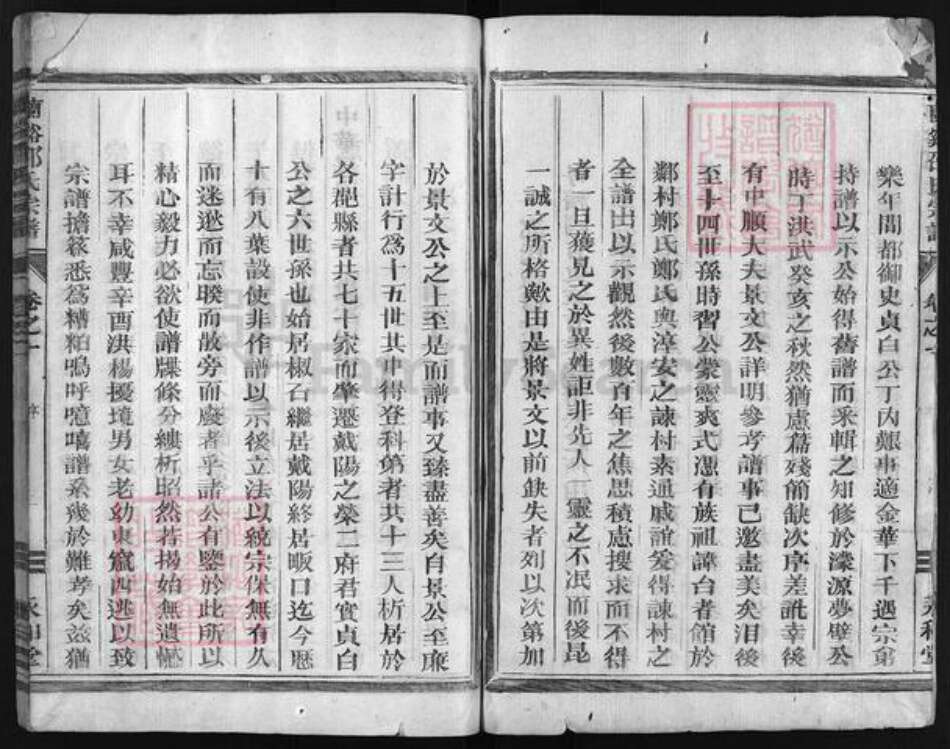 樂年間都御史貞白公丁內艱事適金華下千遇宗弟
持譜以示公始得舊譜而采輯之知修於濛源夢璧公
時丁洪武癸亥之秋然猶慮篇殘簡缺次序差訛幸後
有中順大夫景文公詳明參考譜事已邀盡美矣洎後
至十四世孫時習公蒙靈爽式憑有族祖諱台者館於
鄰村鄭氏鄭氏與淳安之諫村素通戚誼爰得諫村之
全譜出以示觀然後數百年之焦思積慮搜求而不得
者一旦獲見之於異姓詎非先人一靈之不冺而後昆
一誠之所格歟由是將景文以前缺失者列以次第加
於景文公之上至是而譜事又臻盡善矣自景公至康
字計行為十五世其中得登科第者共十三人析居於
各郡縣者共七十家而肇遷戴陽之榮二府君實貞白
公之六世孫也始居椒石繼居戴陽終居畈口迄今歷
十有八葉設使非作譜以示後立法以統宗保無有久
而迷遠而忘暌而散旁而廢者乎諸公有鑒於此所以
精心毅力必欲使譜牒條分縷析昭然若揭始無遺憾
耳不幸咸豐辛酉洪楊擾境男女老幼東竄西逃以致
宗譜擔簽悉為糟粕嗚呼噫嘻譜系幾於難考矣茲猶
邵氏宗譜
卷之一
序
永和堂